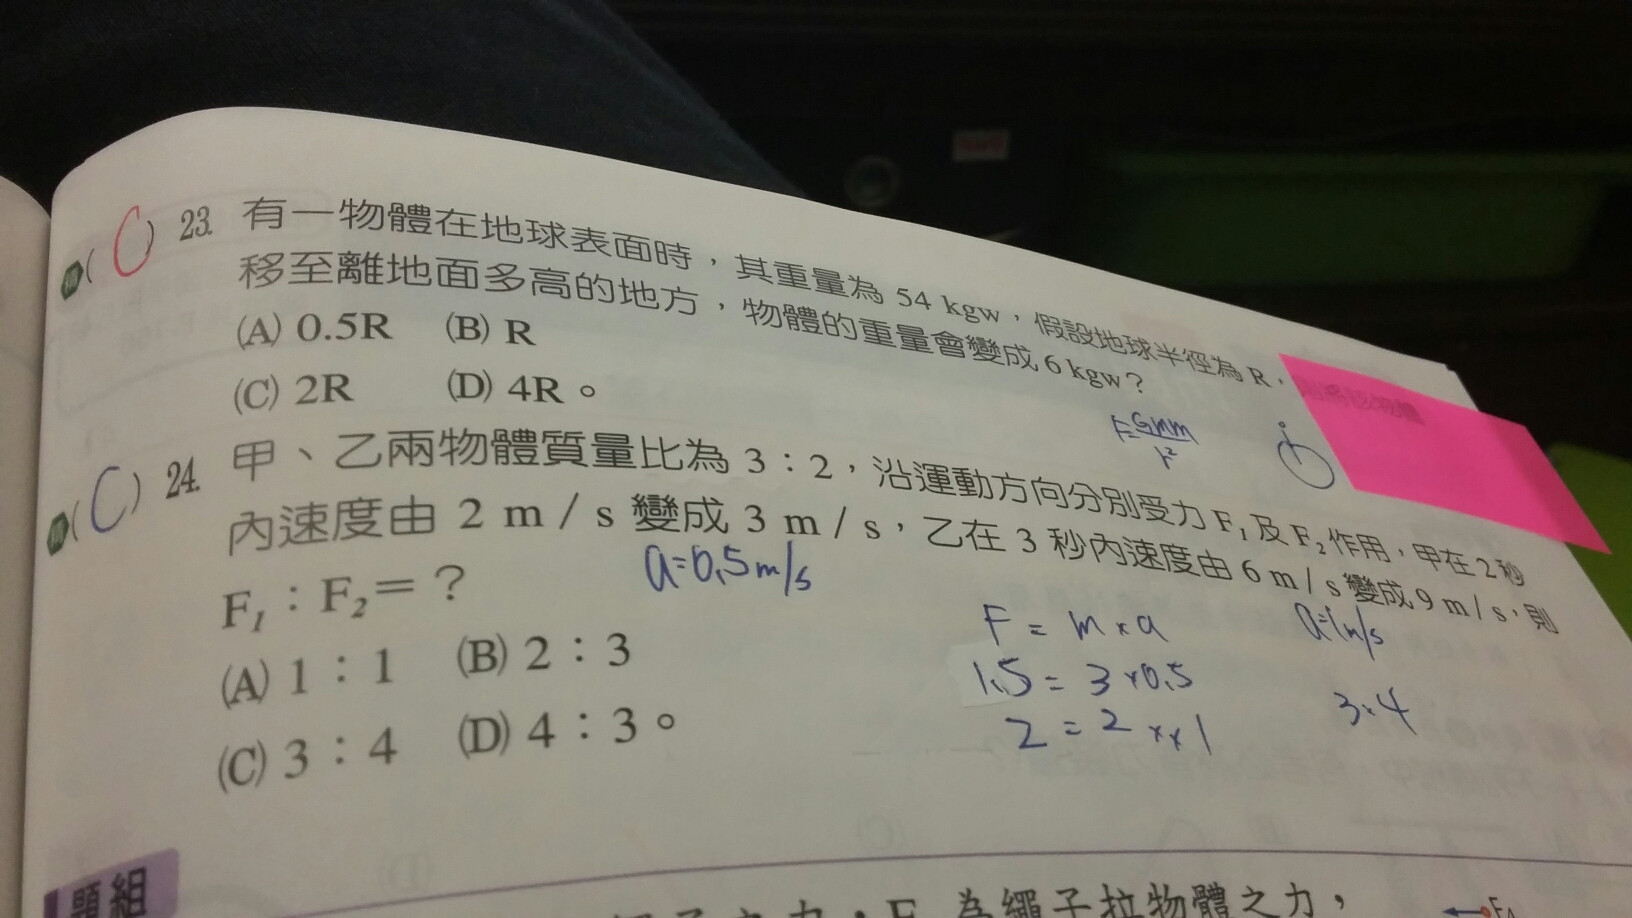 (C) 23. 有一物體在地球表面時，其重量為 54 kgw，假設地球半徑為 R，則將該物體
移至離地面多高的地方，物體的重量會變成 6 kgw？
(A) 0.5R (B) R
(C) 2R (D) 4R。
F=GMm/r²
(C) 24. 甲、乙兩物體質量比為 3：2，沿運動方向分別受力 F₁及F₂作用，甲在2秒
內速度由 2 m / s 變成 3 m / s，乙在 3 秒內速度由 6 m / s 變成 9 m / s，則
F₁：F₂＝？
a=0.5m/s
a=1m/s
(A) 1：1 (B) 2：3
(C) 3：4 (D) 4：3。
F = m × a
1.5 = 3 × 0.5
2 = 2 × × 1
3:4
題組
為繩子拉物體之力，